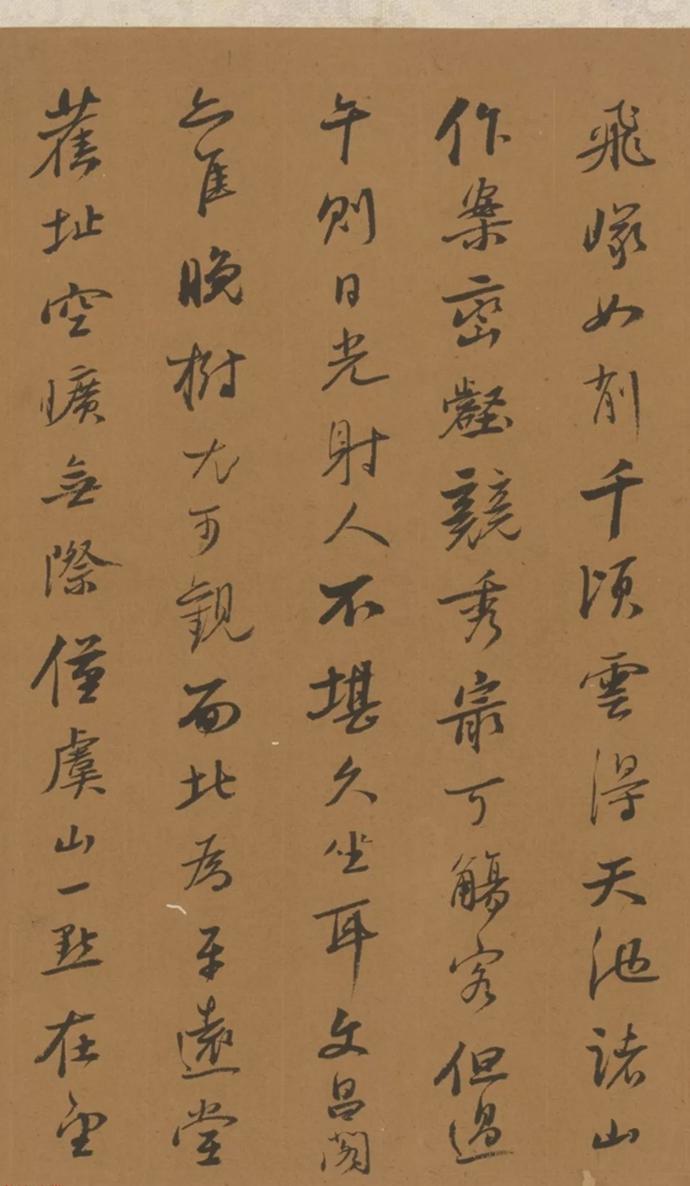 飛㟎如削千頃雲得天池諸山
作案巒壑競秀最可觴客但過
午則日光射人不堪久坐耳文昌閣
亦佳晚樹尤可觀而北為平遠堂
舊址空曠無際僅虞山一點在望